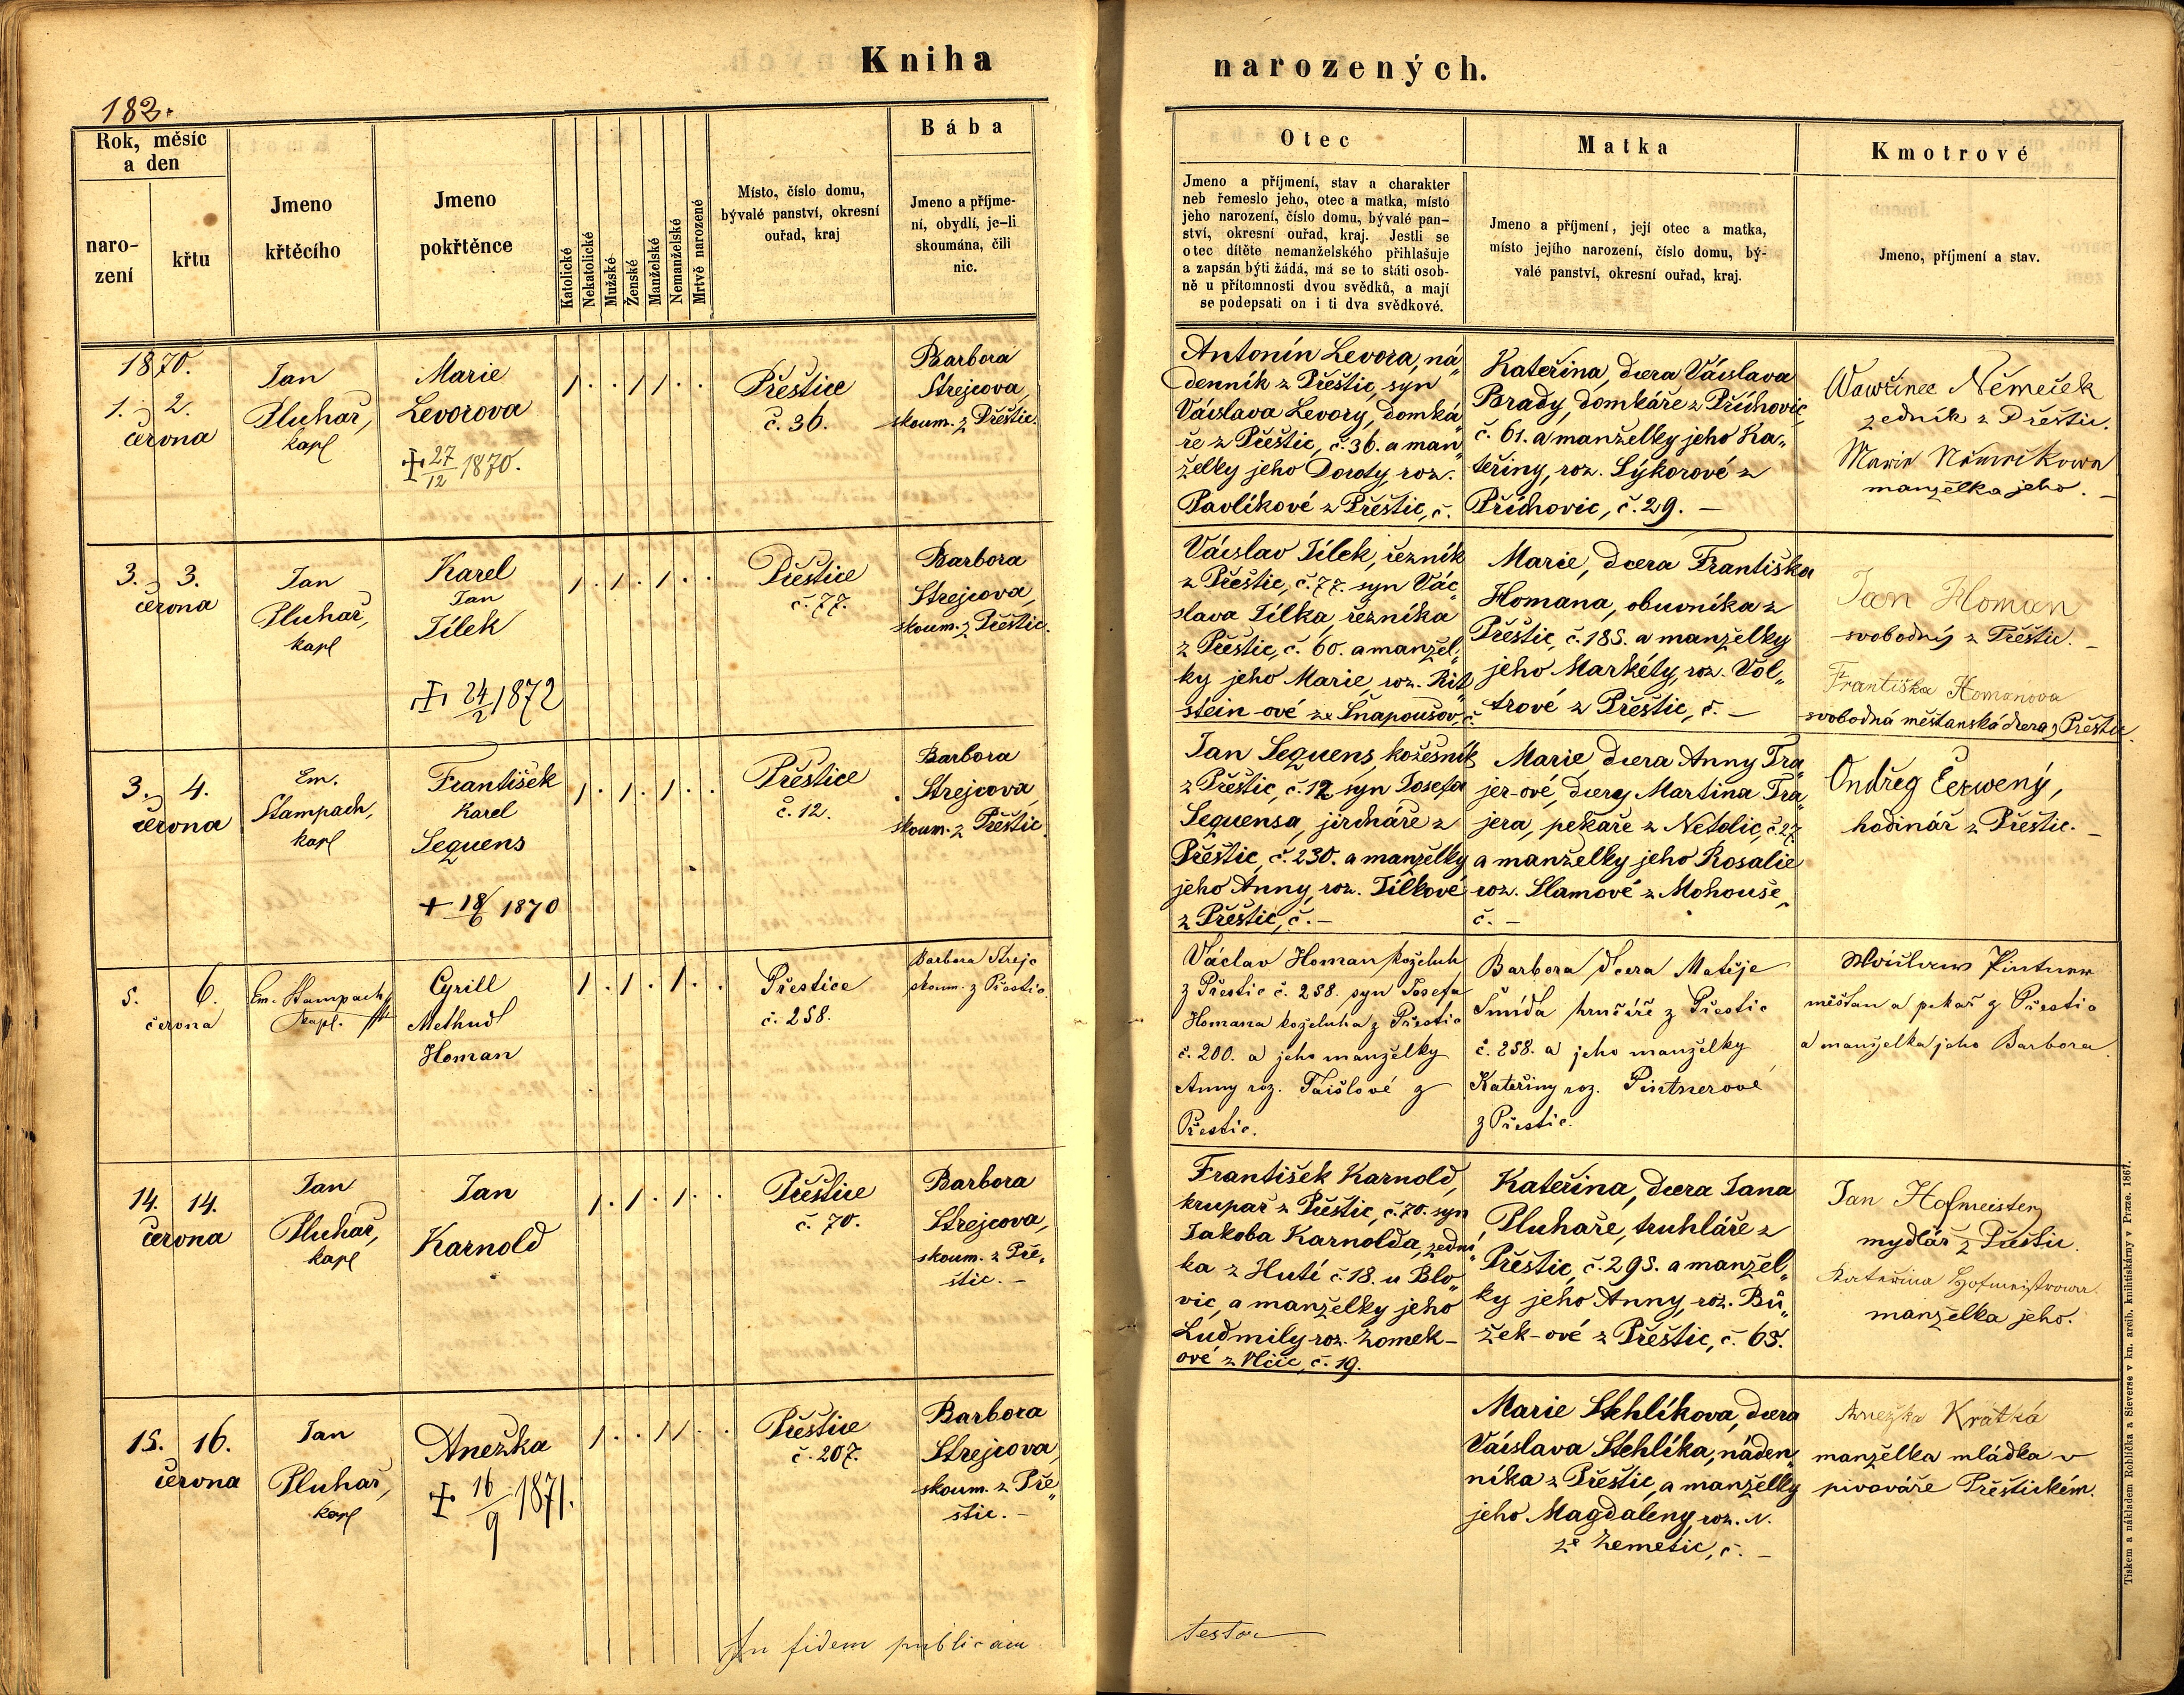 Kniha
182.
Rok, měsíc
a den
naro-
zení
křtu
Jmeno
křtěcího
Jmeno
pokřtěnce
Katolické
Nekatolické
Mužské
Ženské
Manželské
Nemanželské
Mrtvě narozené
Místo, číslo domu,
bývalé panství, okresní
ouřad, kraj
Bába
Jmeno a příjme-
ní, obydlí, je-li
skoumána, čili
nic.
1870.
1. 2.
června
Jan
Pluhař,
kapl
Marie
Levorova
27/12 1870.
1 . . 1 1 . .
Přeštice
č. 36.
Barbora
Strejcova,
skoum. z Přeštic.
3. 3.
června
Jan
Pluhař,
kapl
Karel
Jan
Jílek
24/2 1872
1 . 1 . 1 . .
Přeštice
č. 77.
Barbora
Strejcova,
skoum. z Přeštic.
3. 4.
června
Em.
Stampach,
kapl
František
Karel
Sequens
+ 18/6 1870
1 . 1 . 1 . .
Přeštice
č. 12.
Barbora
Strejcova,
skoum. z Přeštic.
5. 6.
června
Em. Stampach
kapl.
Cyrill
Method
Homan
1 . 1 . 1 . .
Přestice
č. 258.
Barbora Strejc
skoum. z Přestic.
14. 14.
června
Jan
Pluhař,
kapl
Jan
Karnold
1 . 1 . 1 . .
Přeštice
č. 70.
Barbora
Strejcova,
skoum. z Pře„
štic. –
15. 16.
června
Jan
Pluhař,
kapl
Anežka
16/9 1871.
1 . . 1 1 . .
Přeštice
č. 207.
Barbora
Strejcova,
skoum. z Pře„
štic. –
In fidem publicam
narozených.
Otec
Jmeno a příjmení, stav a charakter
neb řemeslo jeho, otec a matka, místo
jeho narození, číslo domu, bývalé pan-
ství, okresní ouřad, kraj. Jestli se
otec dítěte nemanželského přihlašuje
a zapsán býti žádá, má se to státi osob-
ně u přítomnosti dvou svědků, a mají
se podepsati on i ti dva svědkové.
Matka
Jmeno a příjmení, její otec a matka,
místo jejího narození, číslo domu, bý-
valé panství, okresní ouřad, kraj.
Kmotrové
Jmeno, příjmení a stav.
Antonín Levora, ná„
denník z Přeštic, syn
Václava Levory, domká„
ře z Přeštic, č. 36. a man„
želky jeho Doroty, roz.
Pavlíkové z Přeštic, č.
Kateřina, dcera Václava
Brady, domkáře z Příchovic,
č. 61. a manželky jeho Ka„
teřiny, roz. Sýkorové z
Příchovic, č. 29. –
Wawřinec Němeček
zedník z Přeštic.
Marie
manželka jeho. –
Václav Jílek, řezník
z Přeštic, č. 77. syn Vác„
slava Jílka, řezníka
z Přeštic, č. 60. a manžel„
ky jeho Marie, roz. Rit„
štein-ové ze Šnapoušov, č.
Marie, dcera Františka
Homana, obuvníka z
Přeštic, č. 185. a manželky
jeho Markéty, roz. Vol„
trové z Přeštic, č. –
Jan Homan
svobodný z Přeštic. –
Františka Homanova
svobodná měšťanská dcera z Přeštic.
Jan Sequens, kožešník
z Přeštic, č. 12 syn Josefa
Sequensa, jirchaře z
Přeštic, č. 230. a manželky
jeho Anny, roz. Jílkové
z Přeštic, č. –
Marie, dcera Anny Tra„
jer-ové, dcery Martina Tra„
jera, pekaře z Netolic, č. 27
a manželky jeho Rosalie
roz. Slamové z Mohouše,
č. –
Ondřeg Čerwený,
hodinář z Přeštic. –
Václav Homan koželuh
z Přestic č. 258. syn Josefa
Homana koželuha z Přestic
č. 200. a jeho manželky
Anny roz. z
Přestic.
Barbora dcera Matěje
Šmída hrnčíře z Přestic
č. 258. a jeho manželky
Kateřiny roz. Pintnerové
z Přestic.
Pintner
měšťan a pekař z Přestic
a manželka jeho Barbora.
František Karnold,
krupař z Přeštic, č. 70. syn
Jakoba Karnolda, zední„
ka z Hutí č. 18. u Blo„
vic, a manželky jeho
Ludmily roz. Zomek-
ové z Vlčic, č. 19.
Kateřina, dcera Jana
Pluhaře, truhláře z
Přeštic, č. 295. a manžel„
ky jeho Anny, roz. Bů„
žek-ové z Přeštic, č. 65.
Jan Hofmeister
mydlář z Přeštic.
Kateřina Hofmeistrowa
manželka jeho.
Marie Stehlíkova, dcera
Václava Stehlíka, náden„
níka z Přeštic, a manželky
jeho Magdaleny, roz. N.
ze Zemětic, č. –
Anežka Krátká
manželka mládka v
pivováře Přeštickém.
testor
Tiskem a nákladem Rohlíčka a Sieverse v kn. arcib. knihtiskárny v Praze. 1867.